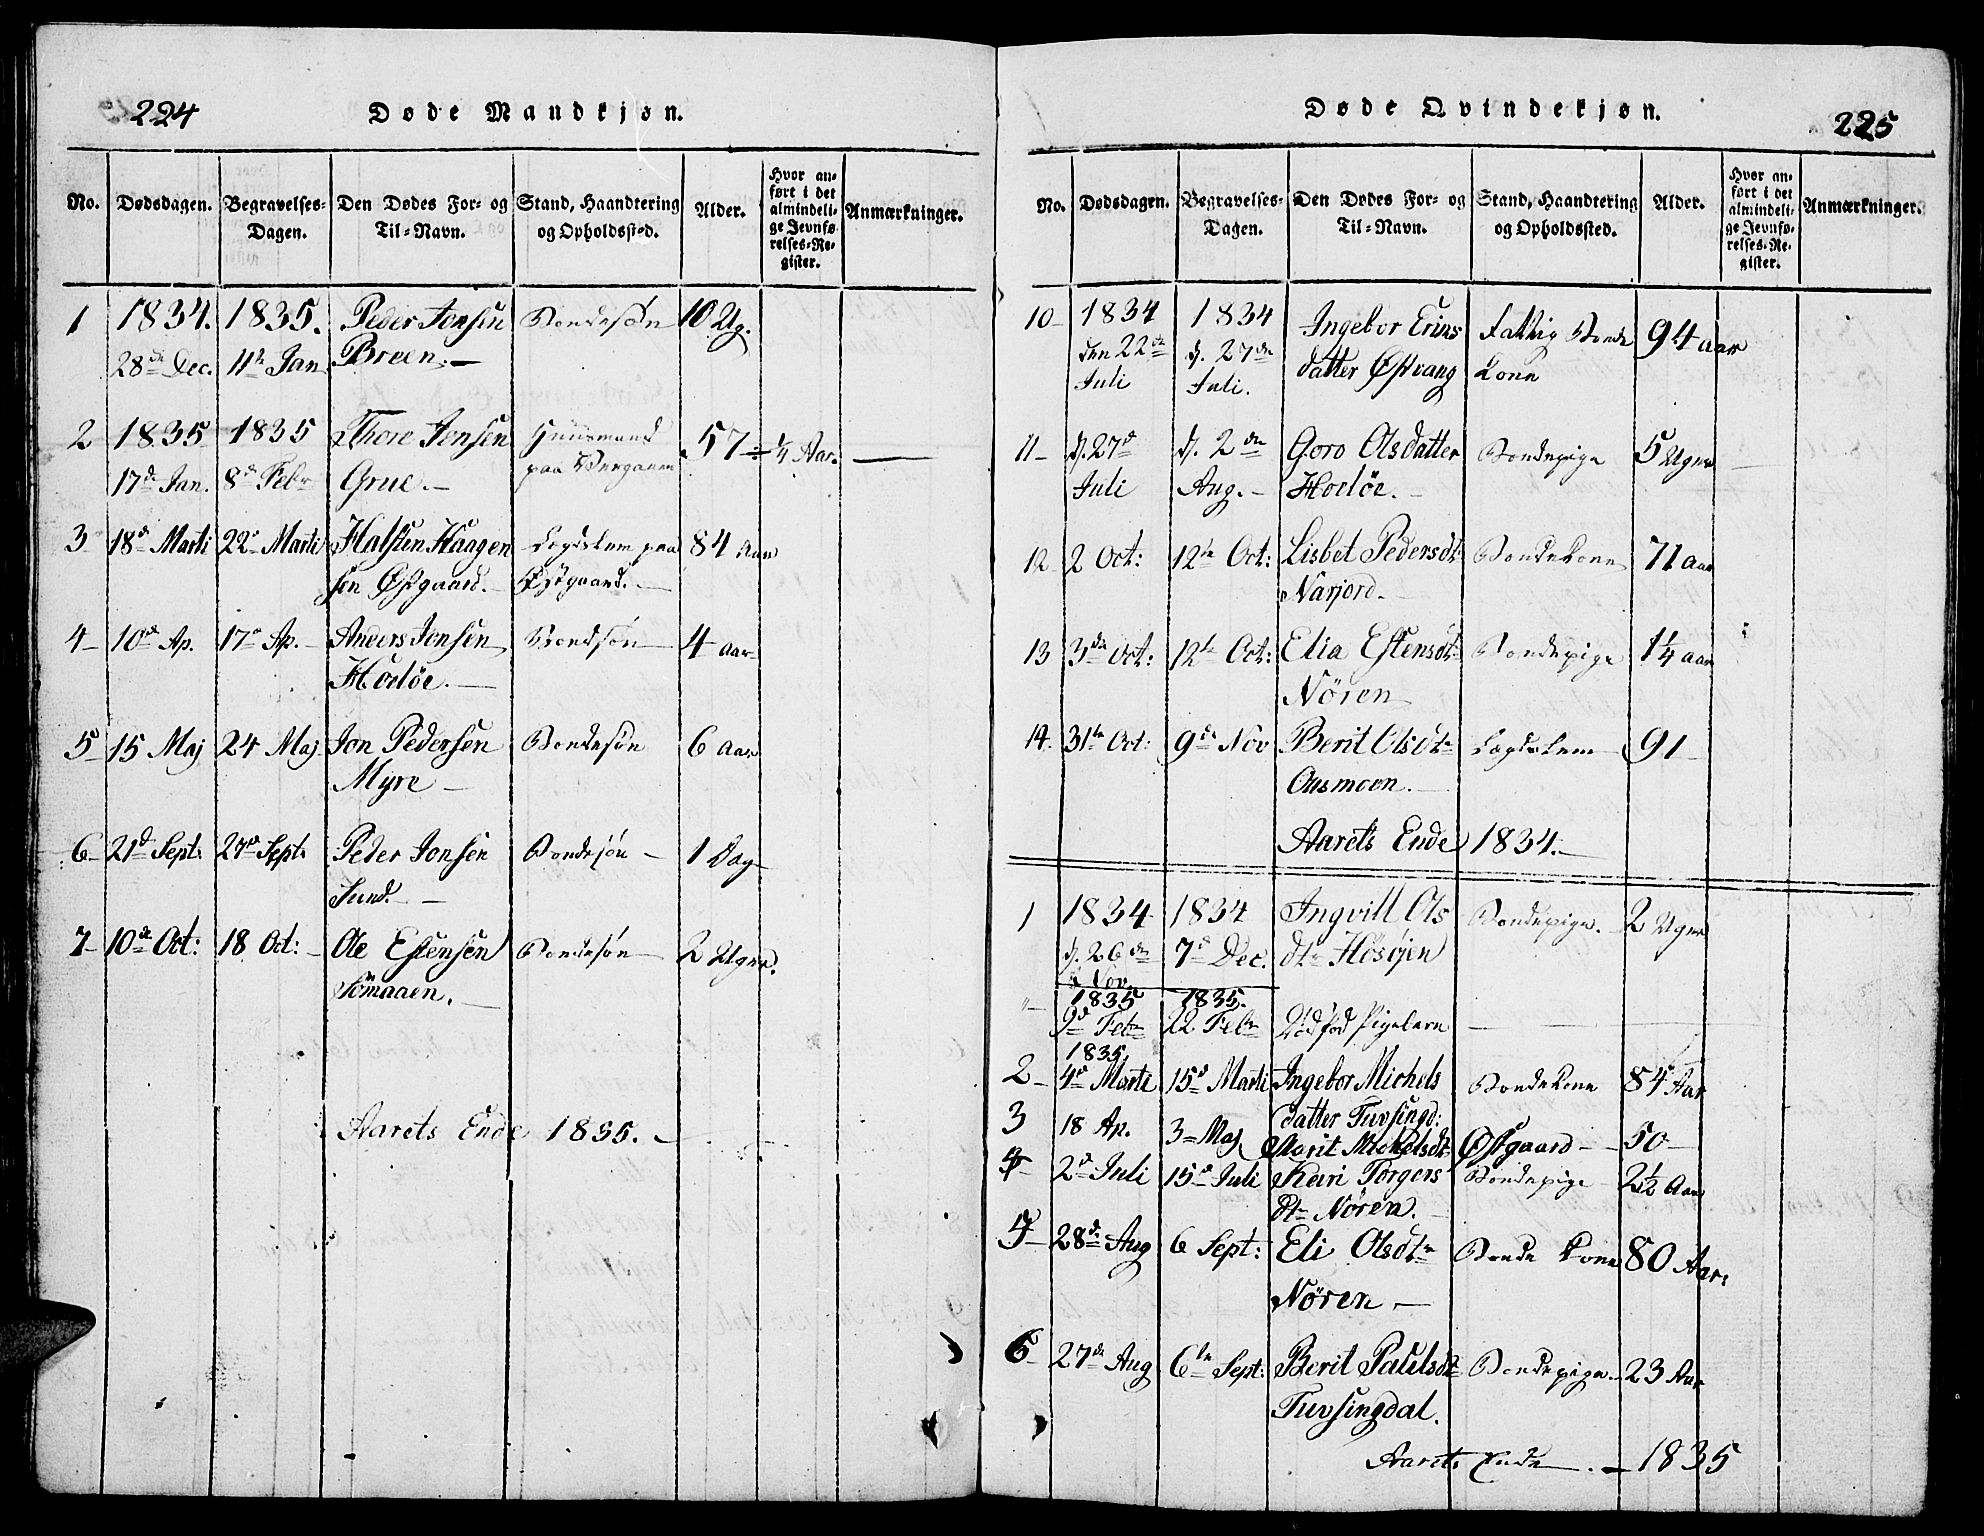 224
Døde Mandkjøn.
No. Dødsdagen. Begravelses-Dagen. Den Dødes For- og Til-Navn. Stand, Haandtering og Opholdssted. Alder. Hvor anført i det almindelige Jevnførelses-Register. Anmærkninger.
1 1834. 1835. Peder Jonsen Bondesøn 10 Ug.
28de Dec. 11te Jan Breen. —
2 1835 1835 Thore Jonsen Huusmand 57 ¼ Aar. —
17de Jan. 8de Febr Grue. — paa
3 18de Marti 22de Marti Halsten Haagen Lægdslem paa 84 Aar
sen Østgaard. — Østgaard. —
4 10de Ap. 17de Ap. — Anders Jonsen Bondesøn 4 Aar
Hodløe. —
5 15 Maj 24 Maj Jon Pedersen Bondesøn 6 Aar
Myre —
6 21de Sept: 27de Sept: Peder Jonsen Bondesøn — 1 Dag
Sund. —
7 10de Oct: 18 Oct: — Ole Estensen Bondesøn 2 Uger.
Sömaaen. —
Aarets Ende 1835. —
225
Døde Qvindekjøn.
No. Dødsdagen. Begravelses-Dagen. Den Dødes For- og Til-Navn. Stand, Haandtering og Opholdssted. Alder. Hvor anført i det almindelige Jevnførelses-Register. Anmærkninger.
10 1834 1834 Ingebor Erics Fattig Bonde 94 Aar
den 22de d. 27de datter Østvang Kone
Juli Juli.
11 d. 27de d. 2den Goro Olsdatter Bondepige 5 Uger
Juli Aug. — Hodløe. —
12 2 Oct: 12te Oct: Lisbet Pedersdtr Bondekone 71 Aar
Narjord. —
13 3de Oct: 12te Oct: Elia Estensdtr Bondepige 1¼ Aar
Nören
14. 31te Oct: 9de Nov Berit Olsdtr Lægdslem 91
Ousmoen. —
Aarets Ende 1834. —
1 1834 1834 Ingvill Ols Bondepige. 2 Uger
d. 26de 7de Dec. dtr Høsøjen
Nov.
" 1835 1835.
9de Febr 22 Febr Dødfød Pigebarn
1835
2 4de Marti 15de Marti Ingebor Michels Bondekone 84 Aar
datter Tuvsingd:
3 18 Ap. 3 Maj Marit Mickelsdtr Østgaard — 50
4 2de Juli 15de Juli Kari Torgers Bondepige 2½ Aar
dtr Nören. —
5 28de Aug 6 Sept: Eli Olsdtr Bonde Kone 80 Aar.
Nören —
6 27de Aug 6te Sept: Berit Paulsdtr Bondepige — 23 Aar
Tuvsingdal.
Aarets Ende. — 1835